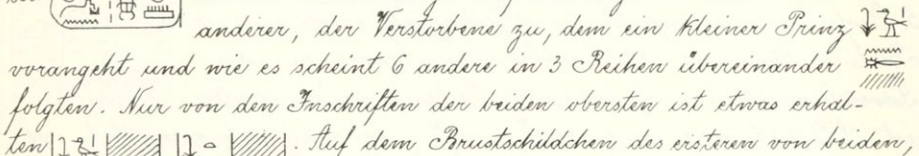 anderer, der Verstorbene zu, dem ein kleiner Prinz
vorangeht und wie es scheint 6 andere in 3 Reihen übereinander
folgten. Nur von den Inschriften der beiden obersten ist etwas erhal-
ten . Auf dem Brustschildchen des ersteren von beiden,